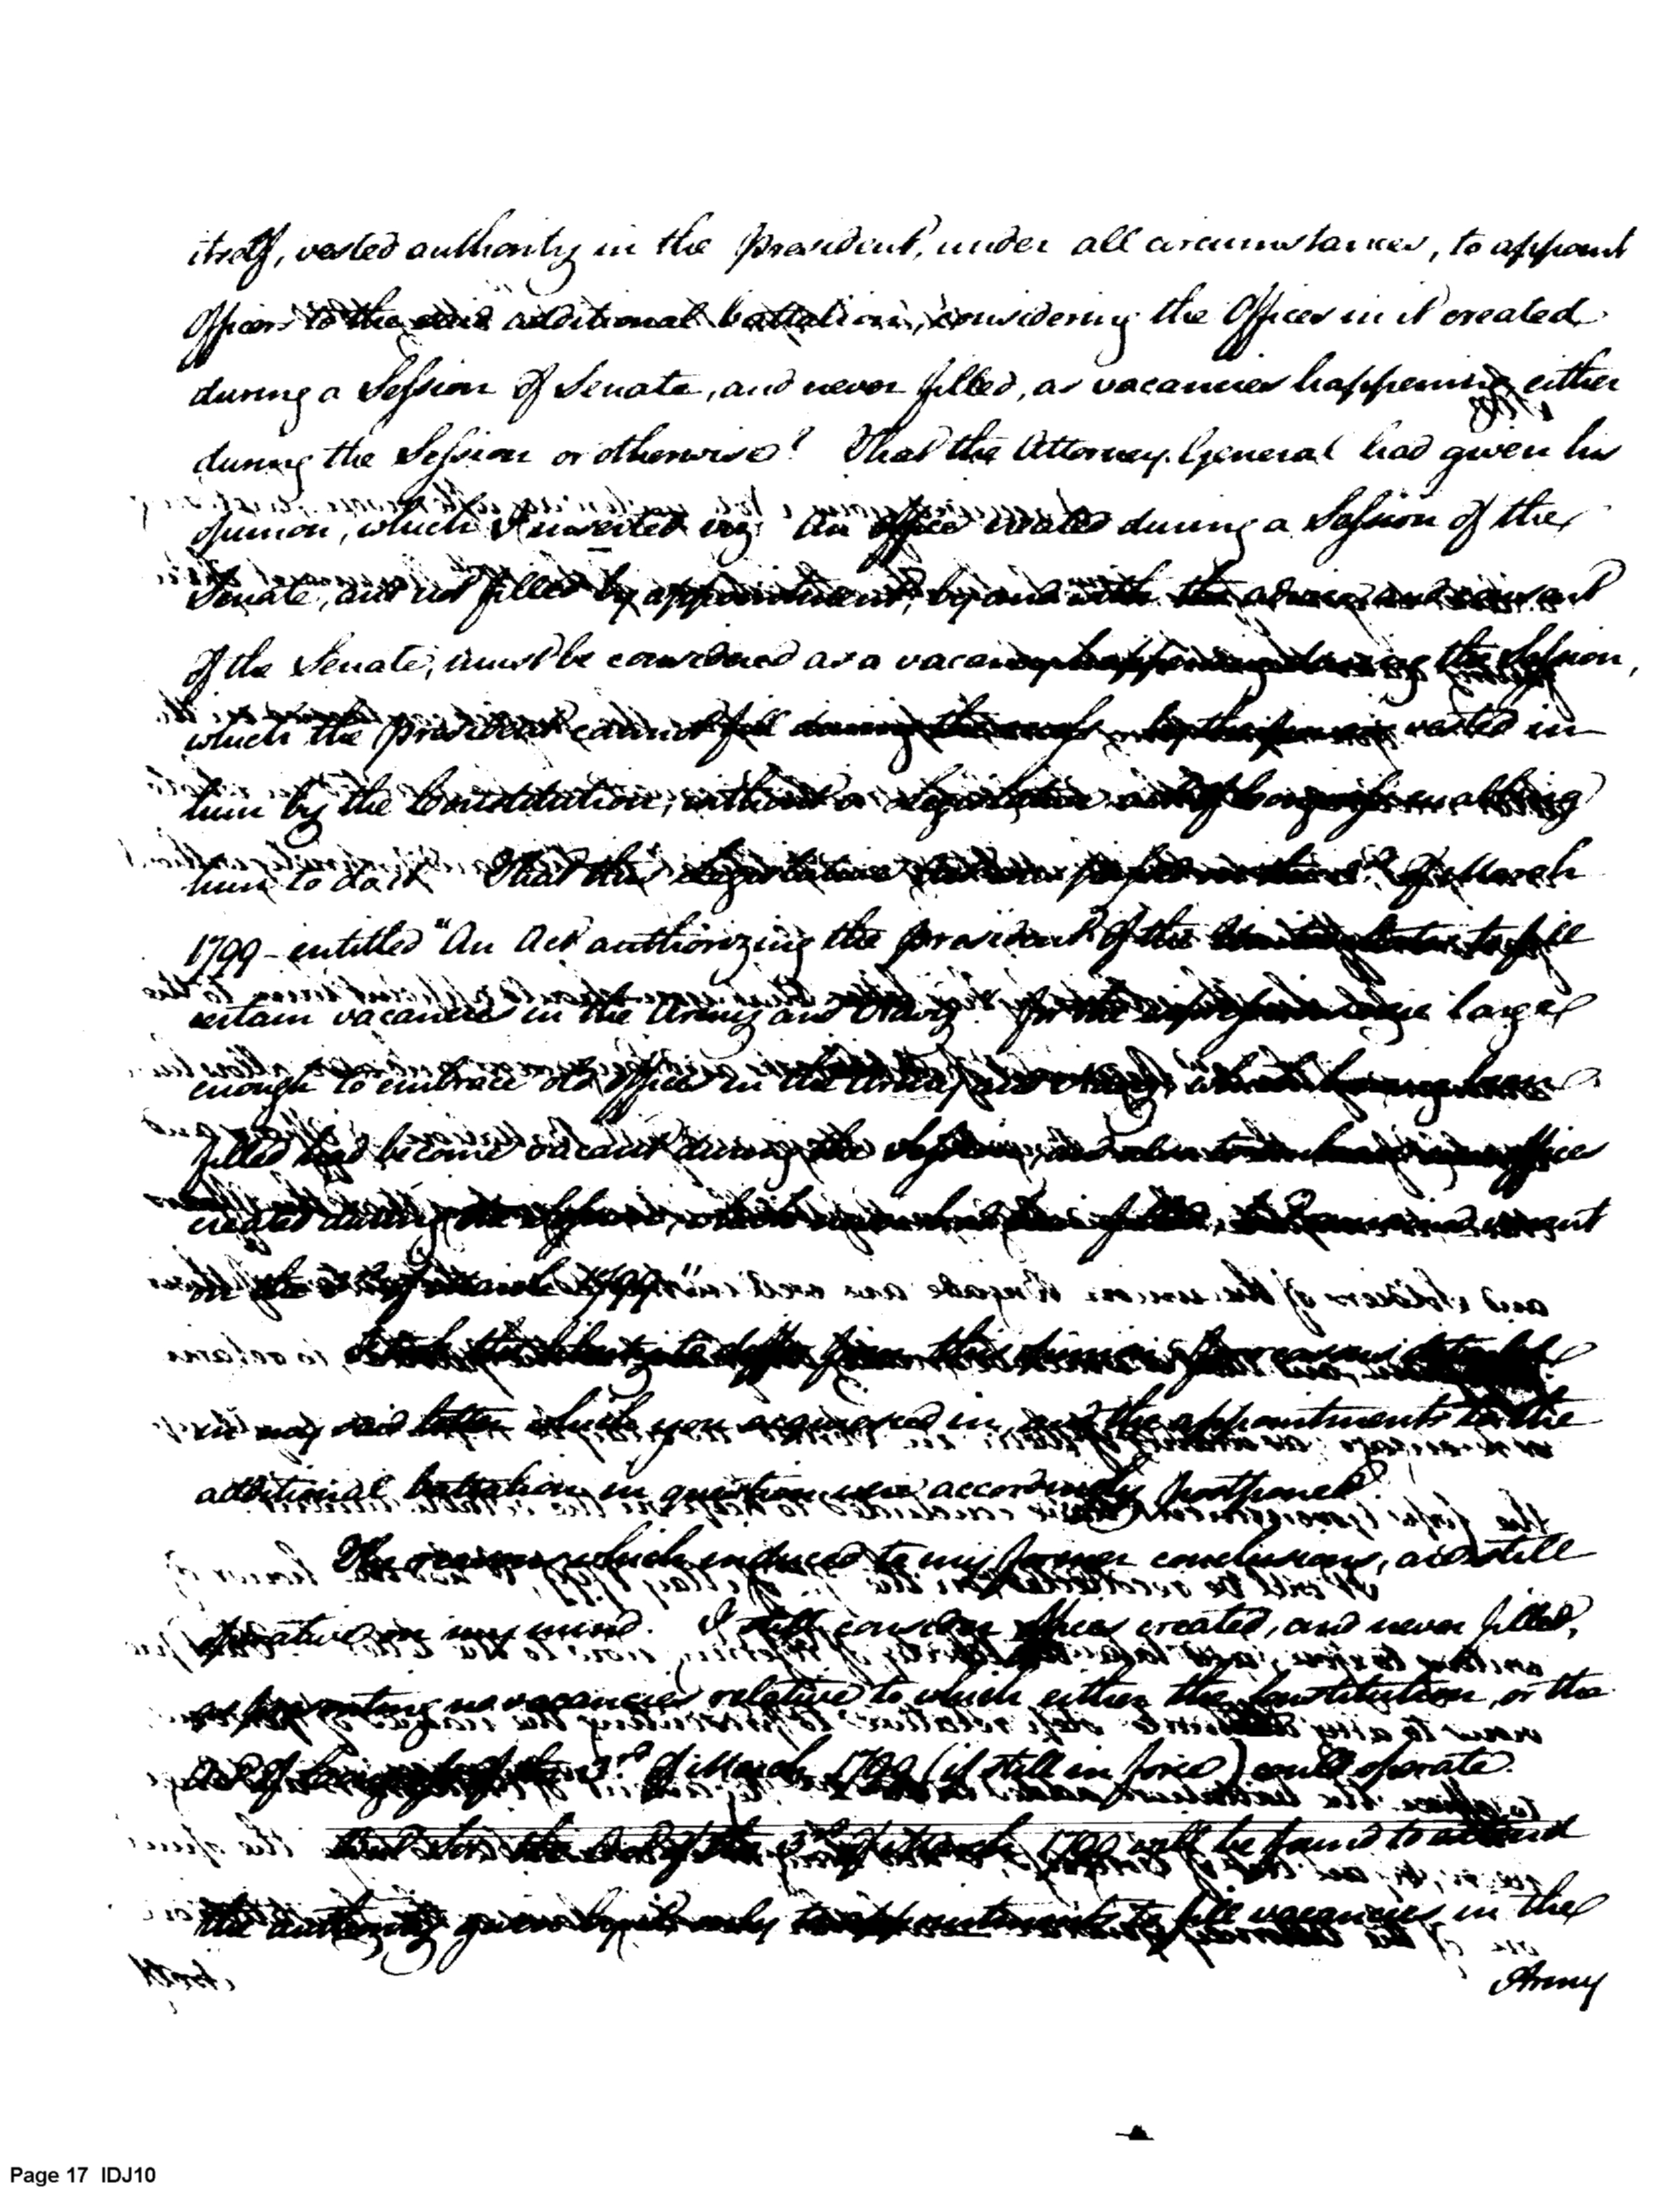 itself, vested authority in the President, under all circumstances, to appoint
Officers to the said additional battalion, considering the Offices in it created
during a Session of Senate, and never filled, as vacancies happening either
during the Session or otherwise? That the Attorney General had given his
opinion, which I inserted viz: An office created during a Session of the
Senate, and not filled by appointment, by and with the advice and consent
of the Senate, must be considered as a vacancy happening during the Session,
which the President cannot fill during the recess, by the powers vested in
him by the Constitution, without a legislative act of Congress enabling
him to do it. That this legislative of March
1799 – entitled "An Act authorizing the President of the United States to fill
certain vacancies in the Army and Navy." For the expressions are large
enough to embrace old offices in the Army and Navy, which having been
filled had become vacant during the Session, and also to embrace new offices
created during the Session, which never had been filled, vacant
on the of March 1799"
I took the liberty to differ from this opinion for reasons detailed
in my said letter which you acquiesced in, and the appointments to the
additional battalion in question were accordingly postponed.
The reasons which induced to my former conclusions, are still
operative in my mind. I still consider offices created, and never filled,
as presenting no vacancies relative to which either the Constitution, or the
Act of Congress of the 3rd of March 1799 (if still in force) could operate.
But the Act of the 3rd of March 1799 will be found to extend
the authority given by it only to appointments to fill vacancies in the
Army
Page 17 IDJ10